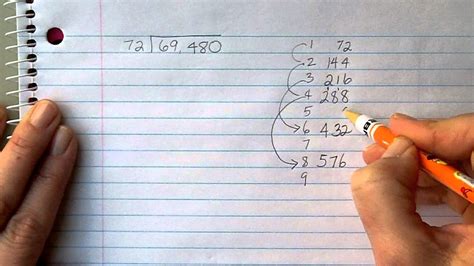 72 √69,480
1 72
2 144
3 216
4 288
5
6 432
7
8 576
9